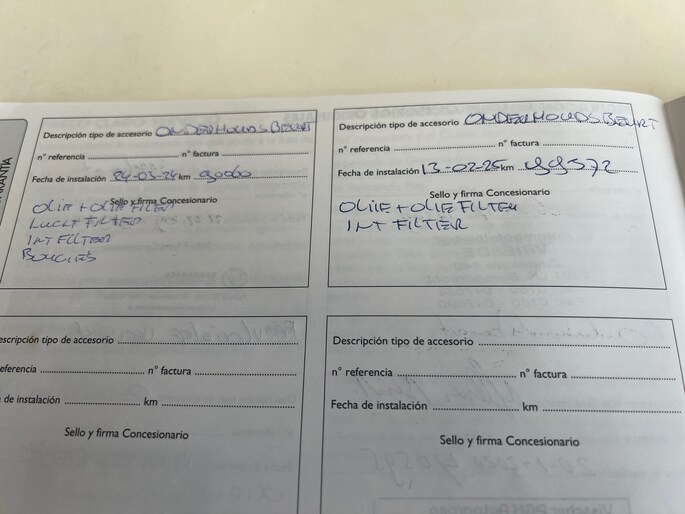 Descripción tipo de accesorio ONDERHOUDSBEURT
n° referencia n° factura
Fecha de instalación 24-03-24 km 90060
Sello y firma Concesionario
OLIE + OLIE FILTER
LUCHT FILTER
INT FILTER
BOUGIES
Descripción tipo de accesorio ONDERHOUDSBEURT
n° referencia n° factura
Fecha de instalación 13-02-25 km 99572
Sello y firma Concesionario
OLIIE + OLIE FILTER
INT FILTIER
escripción tipo de accesorio
eferencia n° factura
de instalación km
Sello y firma Concesionario
Descripción tipo de accesorio
n° referencia n° factura
Fecha de instalación km
Sello y firma Concesionario